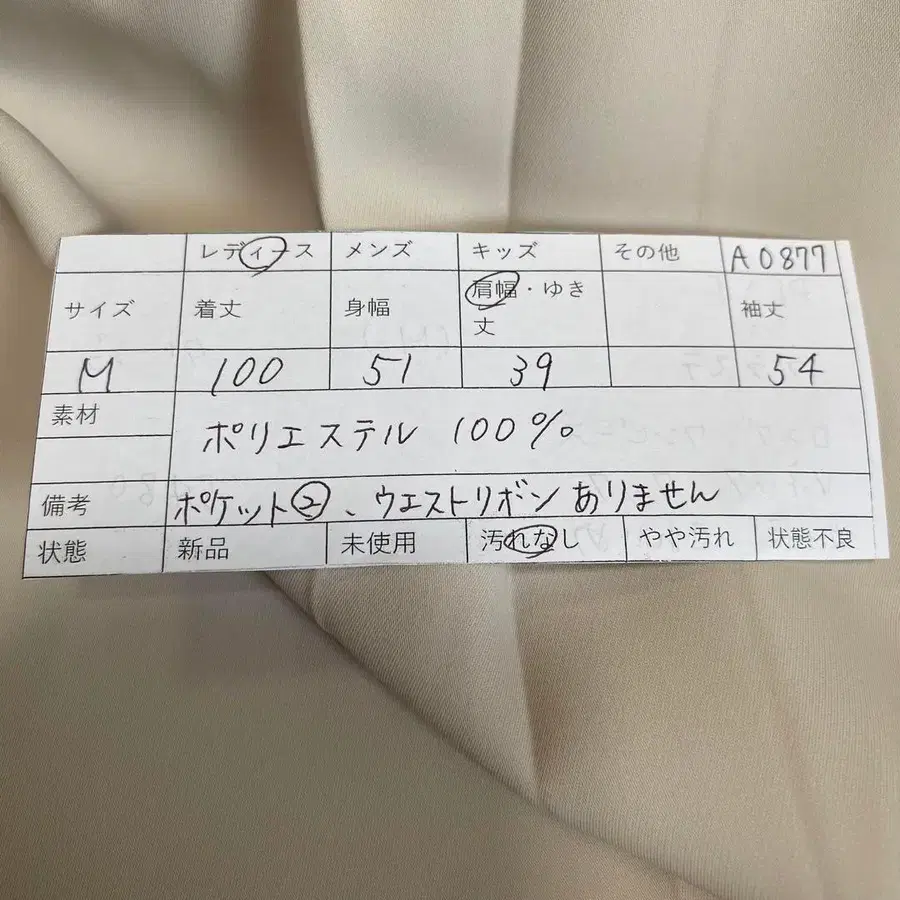 レディース メンズ キッズ その他 A0877
サイズ 着丈 身幅 肩幅・ゆき丈 袖丈
M 100 51 39 54
素材 ポリエステル 100%
備考 ポケット② 、ウエストリボンありません
状態 新品 未使用 汚れなし やや汚れ 状態不良